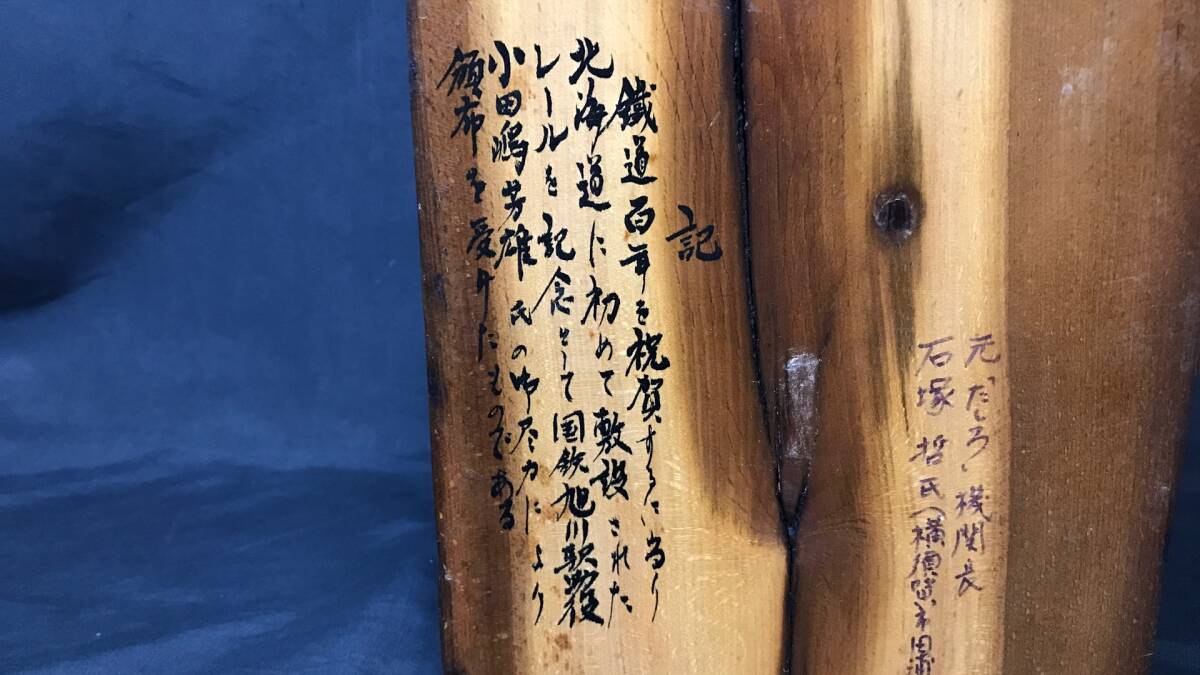 元「だしろ」機関長
石塚 哲氏（横須賀市田浦
記
鐵道百年を祝賀するに当り
北海道に初めて敷設された
レールを記念として国鉄旭川駅
小田嶋芳雄氏の御尽力により
頒布を受けたものである